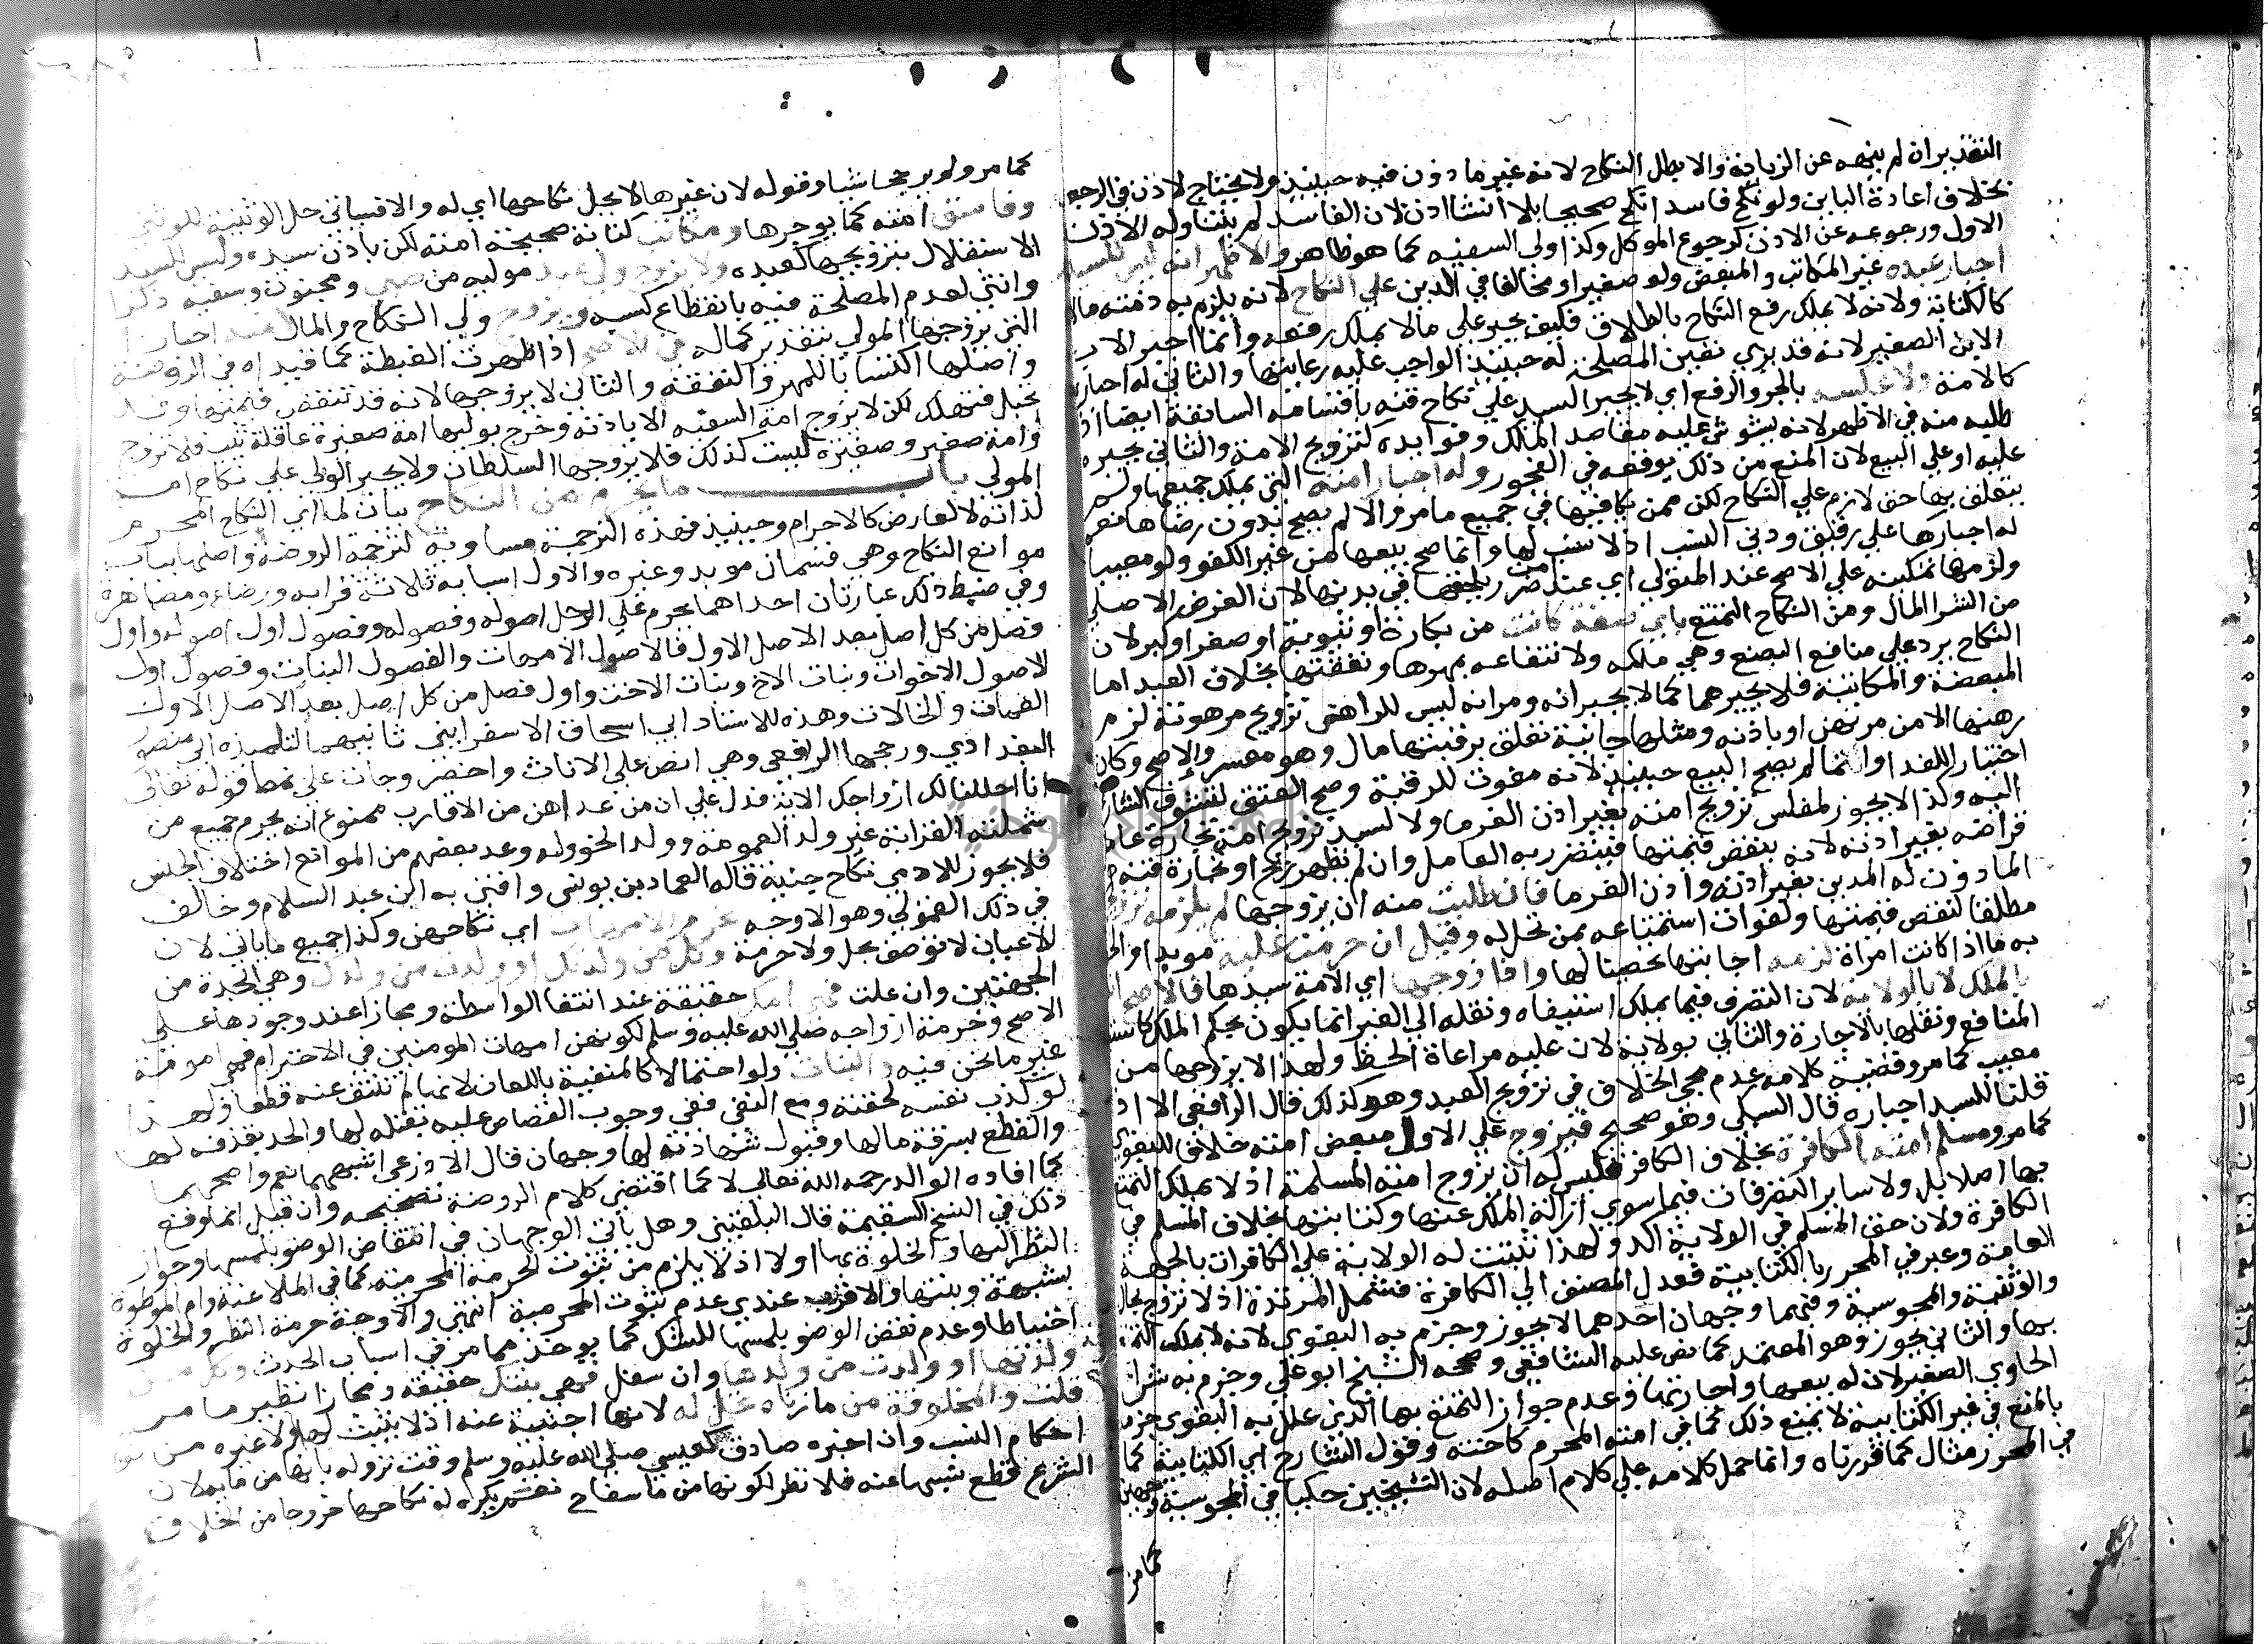 التقدير ان لم ينهه عن الزيادة والا بطل النكاح لانه غير ماذون فيه حينيذ ولا يحتاج لاذن في الرجعة
بخلاف اعادة الباين ولو نكح فاسدا نكح صحيحا بلا انشا اذن لان الفاسد لم يتناوله الاذن
الاول ورجوعه عن الاذن كرجوع الموكل وكذا ولي السفيه كما هو ظاهر والاظهر انه ليس للسيد
اجبار عبده غير المكاتب والمبعض ولو صغيرا او مخالفا في الدين علي النكاح لانه يلزم به ذمته مالا
كالكتابة ولانه لا يملك رفع النكاح بالطلاق فكيف يجبر علي ما لا يملك رفعه وانما اجبر الاب
الابن الصغير لانه قد يري تعين المصلحة له حينيذ الواجب عليه رعايتها والثاني له اجباره
كالامة ولا عكسه بالجر والرفع اي لا يجبر السيد علي نكاح قنه باقسامه السابقة ايضا اذا
طلبه منه في الاظهر لانه يشوش عليه مقاصد الملك وفوايده كتزويج الامة والثاني يجبره
عليه او علي البيع لان المنع من ذلك يوقعه في الفجور وله اجبار امته التي يملك جميعها ولم
يتعلق بها حق لازم علي النكاح لكن ممن يكافيها في جميع ما مر والا لم يصح بدون رضاها نعم
له اجبارها علي رقيق ودني النسب اذ لا نسب لها وانما صح بيعها من غير الكفو ولو معيبا
ولزمها تمكينه علي الاصح عند المتولي اي عند من ضرر يلحقها في بدنها لان الغرض الاصلي
من الشرا المال ومن النكاح التمتع باي صفة كانت من بكارة او ثيوبة او صغر او كبر لان
النكاح يرد علي منافع البضع وهي ملكه ولانتفاعه بمهرها ونفقتها بخلاف العبد اما
المبعضة والمكاتبة فلا يجبرهما كما لا يجبرانه ومر انه ليس للراهن تزويج مرهونة لزم
رهنها الا من مرتهن او باذنه ومثلها جانية تعلق برقبتها مال وهو معسر والا صح وكان
اختيارا للفدا وانما لم يصح البيع حينيذ لانه مفوت للرقبة وصح العتق لتشوف الشارع
اليه وكذا لا يجوز لمفلس تزويج امته بغير اذن الغرما ولا لسيد تزويج امة تجارة عامل
قراضه بغير اذنه لانه ينقص قيمتها فيتضرر به العامل وان لم يظهر ربح او تجارة قنه
الماذون له المدين بغير اذنه واذن الغرما فان طلبت منه ان يزوجها لم يلزمه تزويجها
مطلقا لنقص قيمتها ولفوات استمتاعه بمن تحل له وقيل ان حرمت عليه موبدا والحق
به ما اذا كانت امراة لزمه اجابتها تحصينا لها واذا زوجها اي الامة سيدها فالاصح انه
بالملك لا بالولاية لان التصرف فيما يملك استيفاه ونقله الي الغير انما يكون بحكم الملك كاستيفا
المنافع ونقلها بالاجارة والثاني بولاية لان عليه مراعاة الحظ ولهذا لا يزوجها من
معيب كما مر وقضية كلامه عدم مجي الخلاف في تزويج العبد وهو كذلك قال الرافعي الا اذا
قلنا للسيد اجباره قال السبكي وهو صحيح فيزوج علي الاول مبعض امته خلافا للبغوي
كما مر ومسلم امته الكافرة بخلاف الكافر فليس له ان يزوج امته المسلمة اذ لا يملك التمتع
بها اصلا بل ولا ساير التصرفات فيها سوي ازالة الملك عنها وكتابتها بخلاف المسلم في
الكافرة ولان حق المسلم في الولاية اكد ولهذا تثبت له الولاية علي الكافرات بالجهة
العامة وعبر في المحرر بالكتابية فعدل المصنف الي الكافرة فتشمل المرتدة اذ لا تزوج بحال
والوثنية والمجوسية وفيهما وجهان احدهما لا يجوز وجزم به البغوي لانه لا يملك التمتع
بها والثاني يجوز وهو المعتمد كما نص عليه الشافعي وصححه الشيخ ابو علي وجزم به شراح
الحاوي الصغير لان له بيعها واجارتها وعدم جواز التمتع بها الذي علل به البغوي جزمه
بالمنع في غير الكتابية لا يمنع ذلك كما في امته المحرم كاخته وقول الشارح اي الكتابية كما
في المحرر مثال كما قررناه وانما حمل كلامه علي كلام اصله لان الشيخين حكيا في المجوسية وجهين
كما مر
كما مر ولم يرجحا شيا وقوله لان غيرها لا يحل نكاحها اي له والا فسياتي حل الوثنية للوثني
وفاسق امته كما يوجرها ومكاتب كتابة صحيحة امته لكن باذن سيده وليس للسيد
الاستقلال بتزويجها كعبده ولا يزوج ولي عبد موليه من صبي ومجنون وسفيه ذكرا
وانثي لعدم المصلحة فيه بانقطاع كسبه ويزوج ولي النكاح والمال امته اجبارا
التي يزوجها المولي بتقدير كماله في الاصح اذا ظهرت الغبطة كما قيداه في الروضة
واصلها اكتسابا للمهر والنفقة والثاني لا يزوجها لانه قد تنقص قيمتها وقد
تحبل فتهلك لكن لا يزوج امة السفيه الا باذنه وخرج بوليها امة صغيرة عاقلة ثيب فلا تزوج
وامة صغير وصغيرة ليست كذلك فلا يزوجها السلطان ولا يجبر الولي علي نكاح امة
المولي باب ما يحرم من النكاح بيان لما اي النكاح المحرم
لذاته لا لعارض كالاحرام وحينيذ فهذه الترجمة مساوية لترجمة الروضة واصلها باب
موانع النكاح وهي قسمان موبد وغيره والاول اسبابه ثلاثة قرابه ورضاع ومصاهرة
وفي ضبط ذلك عبارتان احداهما يحرم علي الرجل اصوله وفصوله وفصول اول اصوله واول
فصل من كل اصل بعد الاصل الاول فالاصول الامهات والفصول البنات وفصول اول
الاصول الاخوات وبنات الاخ وبنات الاخت واول فصل من كل اصل بعد الاصل الاول
العمات والخالات وهذه للاستاد ابي اسحاق الاسفرايني ثانيهما لتلميذه ابي منصور
البغدادي ورجحها الرافعي وهي انص علي الاناث واخصر وجات علي نمط قوله تعالى
انا احللنا لك ازواجك الاية فدل علي ان من عداهن من الاقارب ممنوع انه يحرم جميع من
شملته القرابة غير ولد العمومة وولد الخوولة وعد بعضهم من الموانع اختلاف الجنس
فلا يجوز للادمي نكاح جنية قاله العماد بن يونس وافتي به ابن عبد السلام وخالف
في ذلك القمولي وهو الاوجه تحرم الامهات اي نكاحهن وكذا جميع ما ياتي لان
الاعيان لا توصف بحل ولا حرمة وكل من ولدتك او ولدت من ولدك وهي الجدة من
الجهتين وان علت فهي امك حقيقة عند انتفا الواسطة ومجازا عند وجودها علي
الاصح وحرمة ازواجه صلي الله عليه وسلم لكونهن امهات المومنين في الاحترام فهي امومة
غير ما نحن فيه والبنات ولو احتمالا كالمنفية باللعان لانها لم تنتف عنه قطعا ولهذا
لو كذب نفسه لحقته ومع النفي ففي وجوب القصاص عليه بقتله لها والحد بقذفه لها
والقطع بسرقة مالها وقبول شهادته لها وجهان قال الاذرعي اشبههما نعم واصحهما
كما افاده الوالد رحمه الله تعالى لا كما اقتضي كلام الروضة تصحيحه وان قيل انما وقع
ذلك في النسخ السقيمة قال البلقيني وهل ياتي الوجهان في انتقاض الوضو بلمسها وجواز
النظر اليها والخلوة بها اولا اذ لا يلزم من ثبوت الحرمة المحرمية كما في الملاعنة وام الموطوة
بشبهة وبنتها والاقرب عندي عدم ثبوت المحرمية انتهي والاوجه حرمة النظر والخلوة
احتياطا وعدم نقض الوضو بلمسها للشك كما يوخذ مما مر في اسباب الحدث وكل من
ولدتها او ولدت من ولدها وان سفل فهي بنتك حقيقة ومجازا نظير ما مر
قلت والمخلوقة من ما زناه تحل له لانها اجنبية عنه اذ لا يثبت لها ولا غيره من
احكام النسب وان اخبره صادق كعيسي صلي الله عليه وسلم وقت نزوله بانها من مايه لان
الشرع قطع نسبها عنه فلا نظر لكونها من ما سفاح نعم يكره له نكاحها خروجا من الخلاف